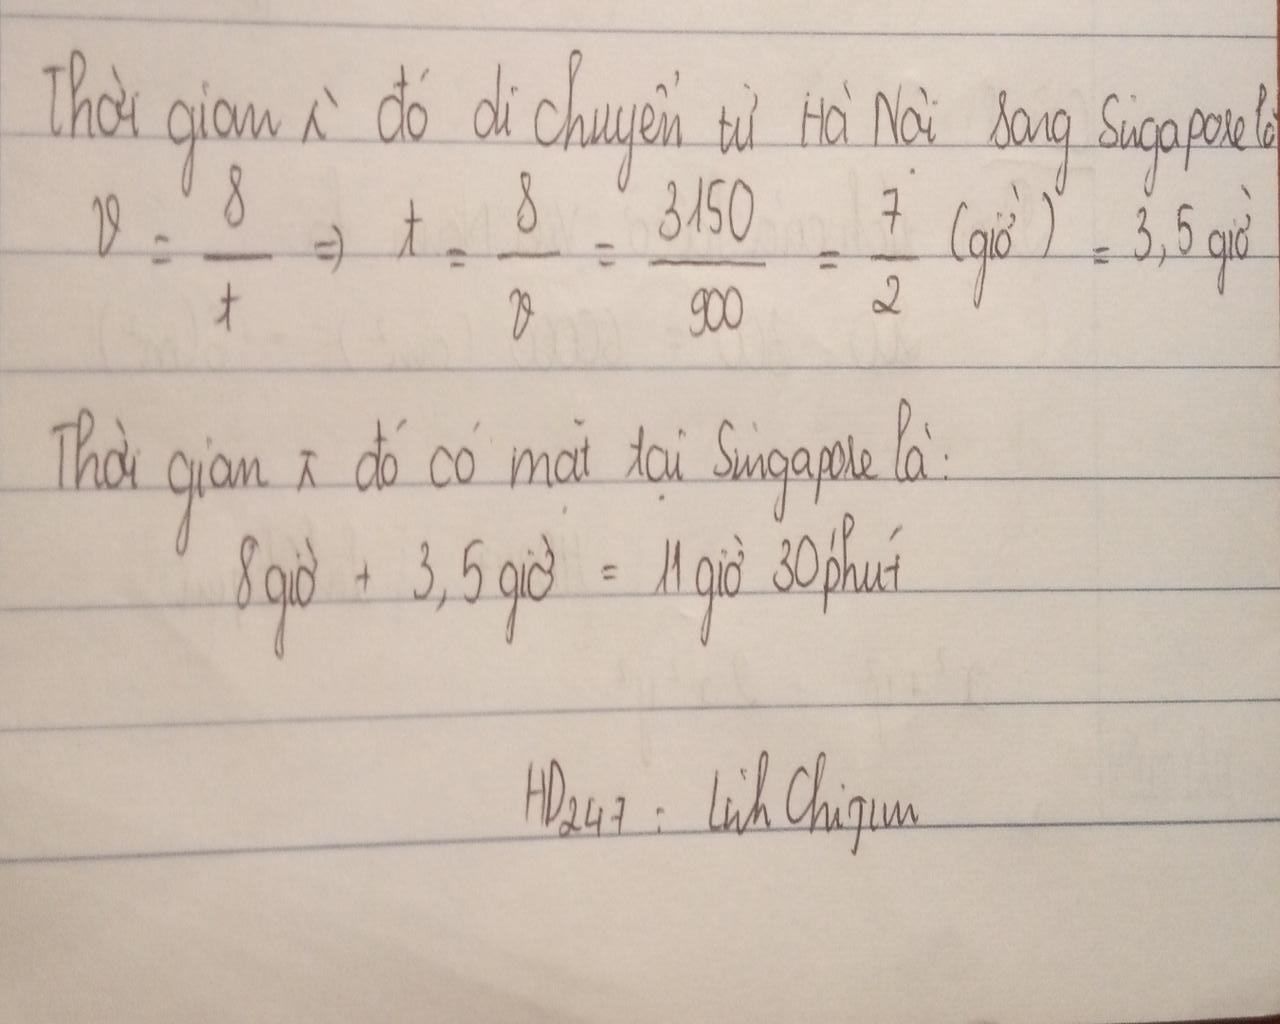 Thời gian x đó di chuyển từ Hà Nội sang Singapore là
v = s/t ⇒ t = s/v = 3150/900 = 7/2 (giờ) = 3,5 giờ
Thời gian x đó có mặt tại Singapore là:
8 giờ + 3,5 giờ = 11 giờ 30 phút
HD247 : Linh Chi